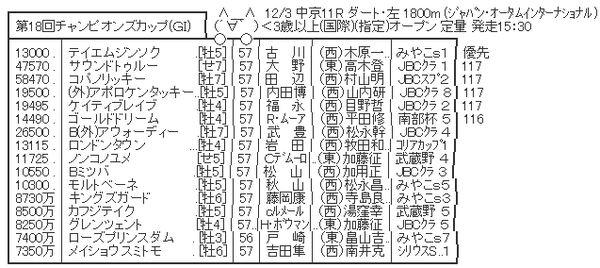 第18回チャンピオンズカップ(GI) 12/3 中京11R ダート・左 1800m (ジャパン・オータムインターナショナル)
(´▽`) <3歳以上(国際)(指定)オープン 定量 発走15:30
13000. テイエムジンソク [牡5] 57 古川 (西)木原一.. みやこs1 優先
47570. サウンドトゥルー [せ7] 57 大野 (東)高木登.. JBCクラ1 117
58470. コパノリッキー [牡7] 57 田辺 (西)村山明.. JBCスプ2 117
19500. (外)アポロケンタッキー.. [牡5] 57 内田博 (西)山内研.. JBCクラ8 117
19495. ケイティブレイブ [牡4] 57 福永 (西)目野哲.. JBCクラ2 117
14490. ゴールドドリーム [牡4] 57 R・ムーア (西)平田修.. 南部杯5 116
26500. B(外)アウォーディー [牡7] 57 武豊 (西)松永幹.. JBCクラ4
13115. ロンドンタウン ...[牡4] 57 岩田 (西)牧田和.. コリアカップ1
11725. ノンコノユメ [せ5] 57 Cデムーロ (東)加藤征.. 武蔵野4
10550. Bミツバ [牡5] 57 松山 (西)加用正.. JBCクラ3
10300. モルトベーネ [牡5] 57 秋山 (西)松永昌.. みやこs5
8730万 キングズガード [牡6] 57 藤岡康 (西)寺島良.. みやこs3
8500万 カフジテイク [牡5] 57 cルメール (西)湯窪幸.. 武蔵野5
8250万 グレンツェント [牡4] 57.. H・ボウマン (東)加藤征.. JBCクラ5
7400万 ローズプリンスダム.. [牡3] 56 戸崎 (東)畠山吉.. みやこs7
7350万 メイショウスミトモ [牡6] 57 吉田隼 (西)南井克.. シリウスS..1